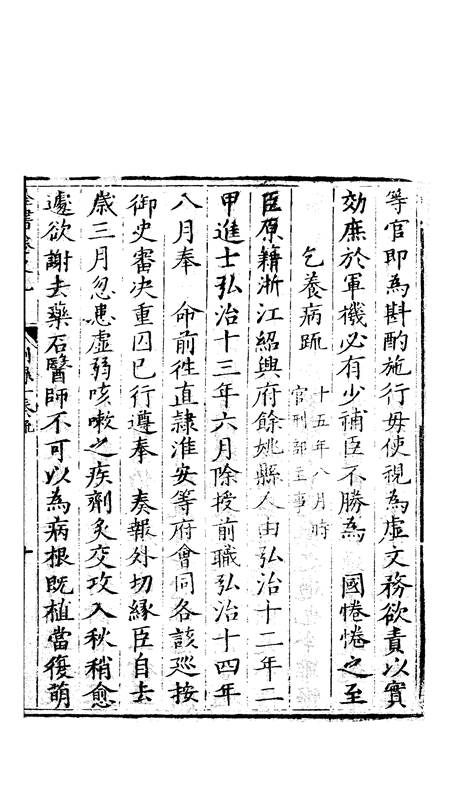 等官即為斟酌施行毋使視為虛文務欲責以實
効庶於軍機必有少補臣不勝為　國惓惓之至
乞養病疏
十五年八月時
官刑部主事
臣原籍浙江紹興府餘姚縣人由弘治十二年二
甲進士弘治十三年六月除授前職弘治十四年
八月奉　命前徃直隸淮安等府會同各該廵按
御史審决重囚已行遵奉　奏報外切縁臣自去
歲三月忽患虛弱咳嗽之疾劑炙交攻入秋稍愈
遽欲謝去藥石醫師不可以為病根既植當復萌